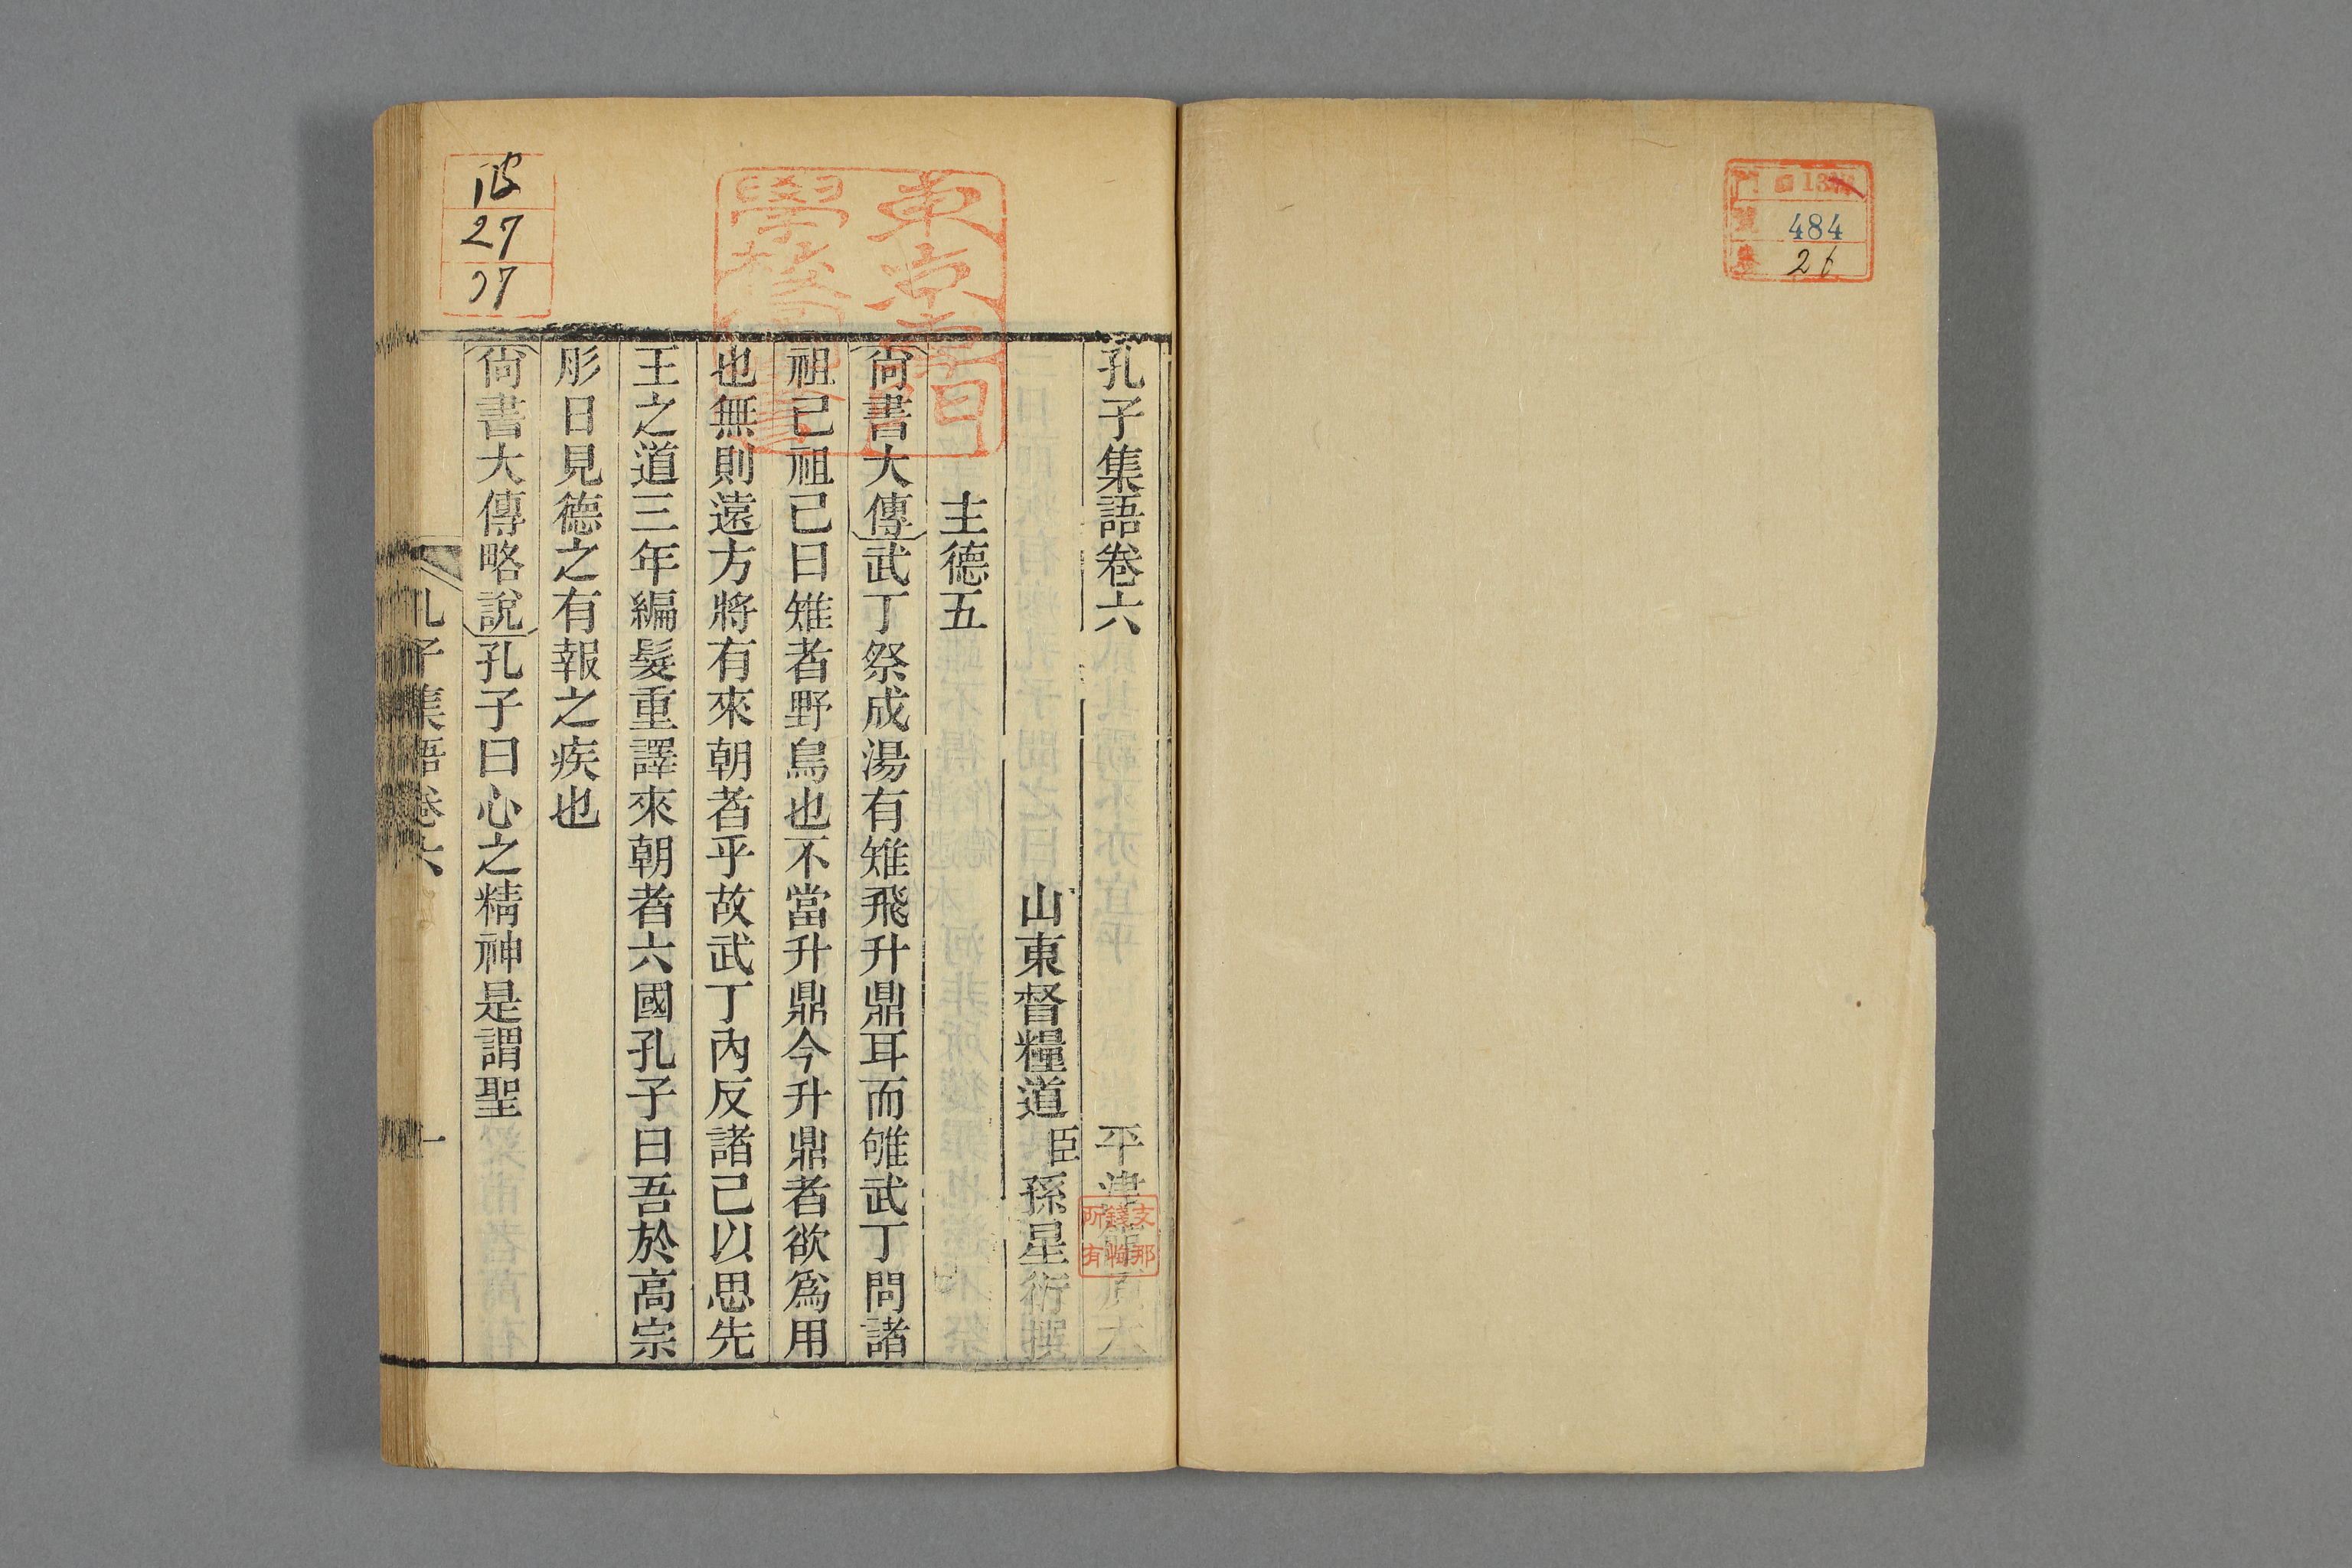 484
26
孔子集語卷六
平津館原本
支那
錢恂
所有
山東督糧道臣孫星衍撰
主德五
尙書大傳武丁祭成湯有雉飛升鼎耳而雊武丁問諸
祖己祖己曰雉者野鳥也不當升鼎今升鼎者欲爲用
也無則遠方將有來朝者乎故武丁內反諸己以思先
王之道三年編髮重譯來朝者六國孔子曰吾於高宗
肜日見德之有報之疾也
尙書大傳略說孔子曰心之精神是謂聖
孔子集語卷六
一
27